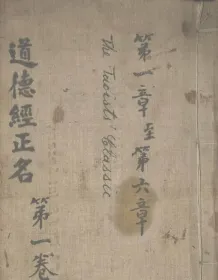 第一章至第六章
The Taoists' Classic
道德經正名
第一卷